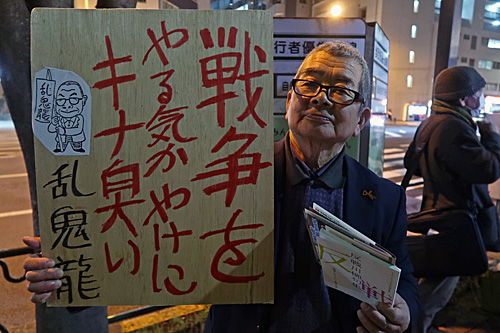 戦争を
やる気がやけに
キナ臭い
乱鬼龍
乱鬼龍
行者優